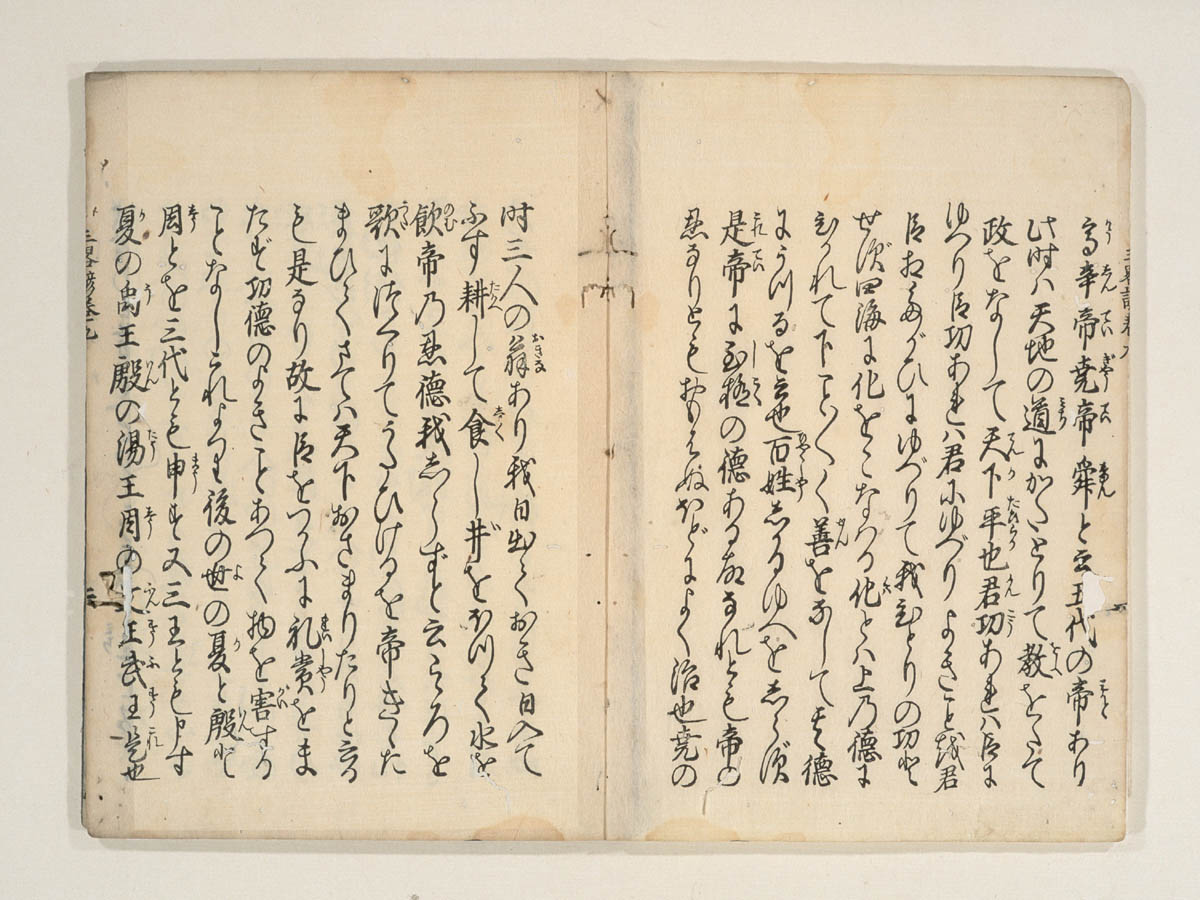 高辛帝堯帝舜と云五代の帝あり
此時ハ天地の道にかたとりて教をたて
政をなして天下平也君功あれハ臣に
ゆつり臣功あれハ君にゆづりよきことを君
臣たがひにゆづりて我ひとりの功と
せず四海に化をおこなつる化とハ上乃徳に
ひかれて下こと〳〵く善をなして其徳
にうつるを云也百姓しるゆへをしらず
是帝に至極の徳ある故なれとも帝の
恩なりともおもはぬほどによく治也堯の
時三人の翁あり我日出ておき日入て
ふす耕して食し井をほつて水を
飲帝乃恩徳我しらずと云こゝろを
歌につくりてうたひけるを帝きゝた
まひてさてハ天下おさまりたりと云る
も是なり故に臣をつかふに礼賞をま
たず功徳のよきことあつて物を害する
ことなしこれよつて後の世の夏と殷と
周とを三代とも申す又三王とも申す
夏の禹王殷の湯王周の王武王是也